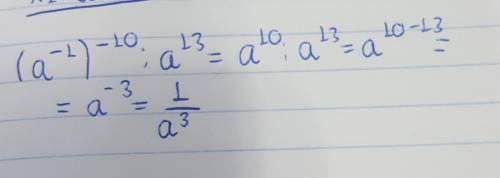 (a⁻¹)⁻¹⁰ : a¹³ = a¹⁰ : a¹³ = a¹⁰⁻¹³ =
= a⁻³ = 1/a³